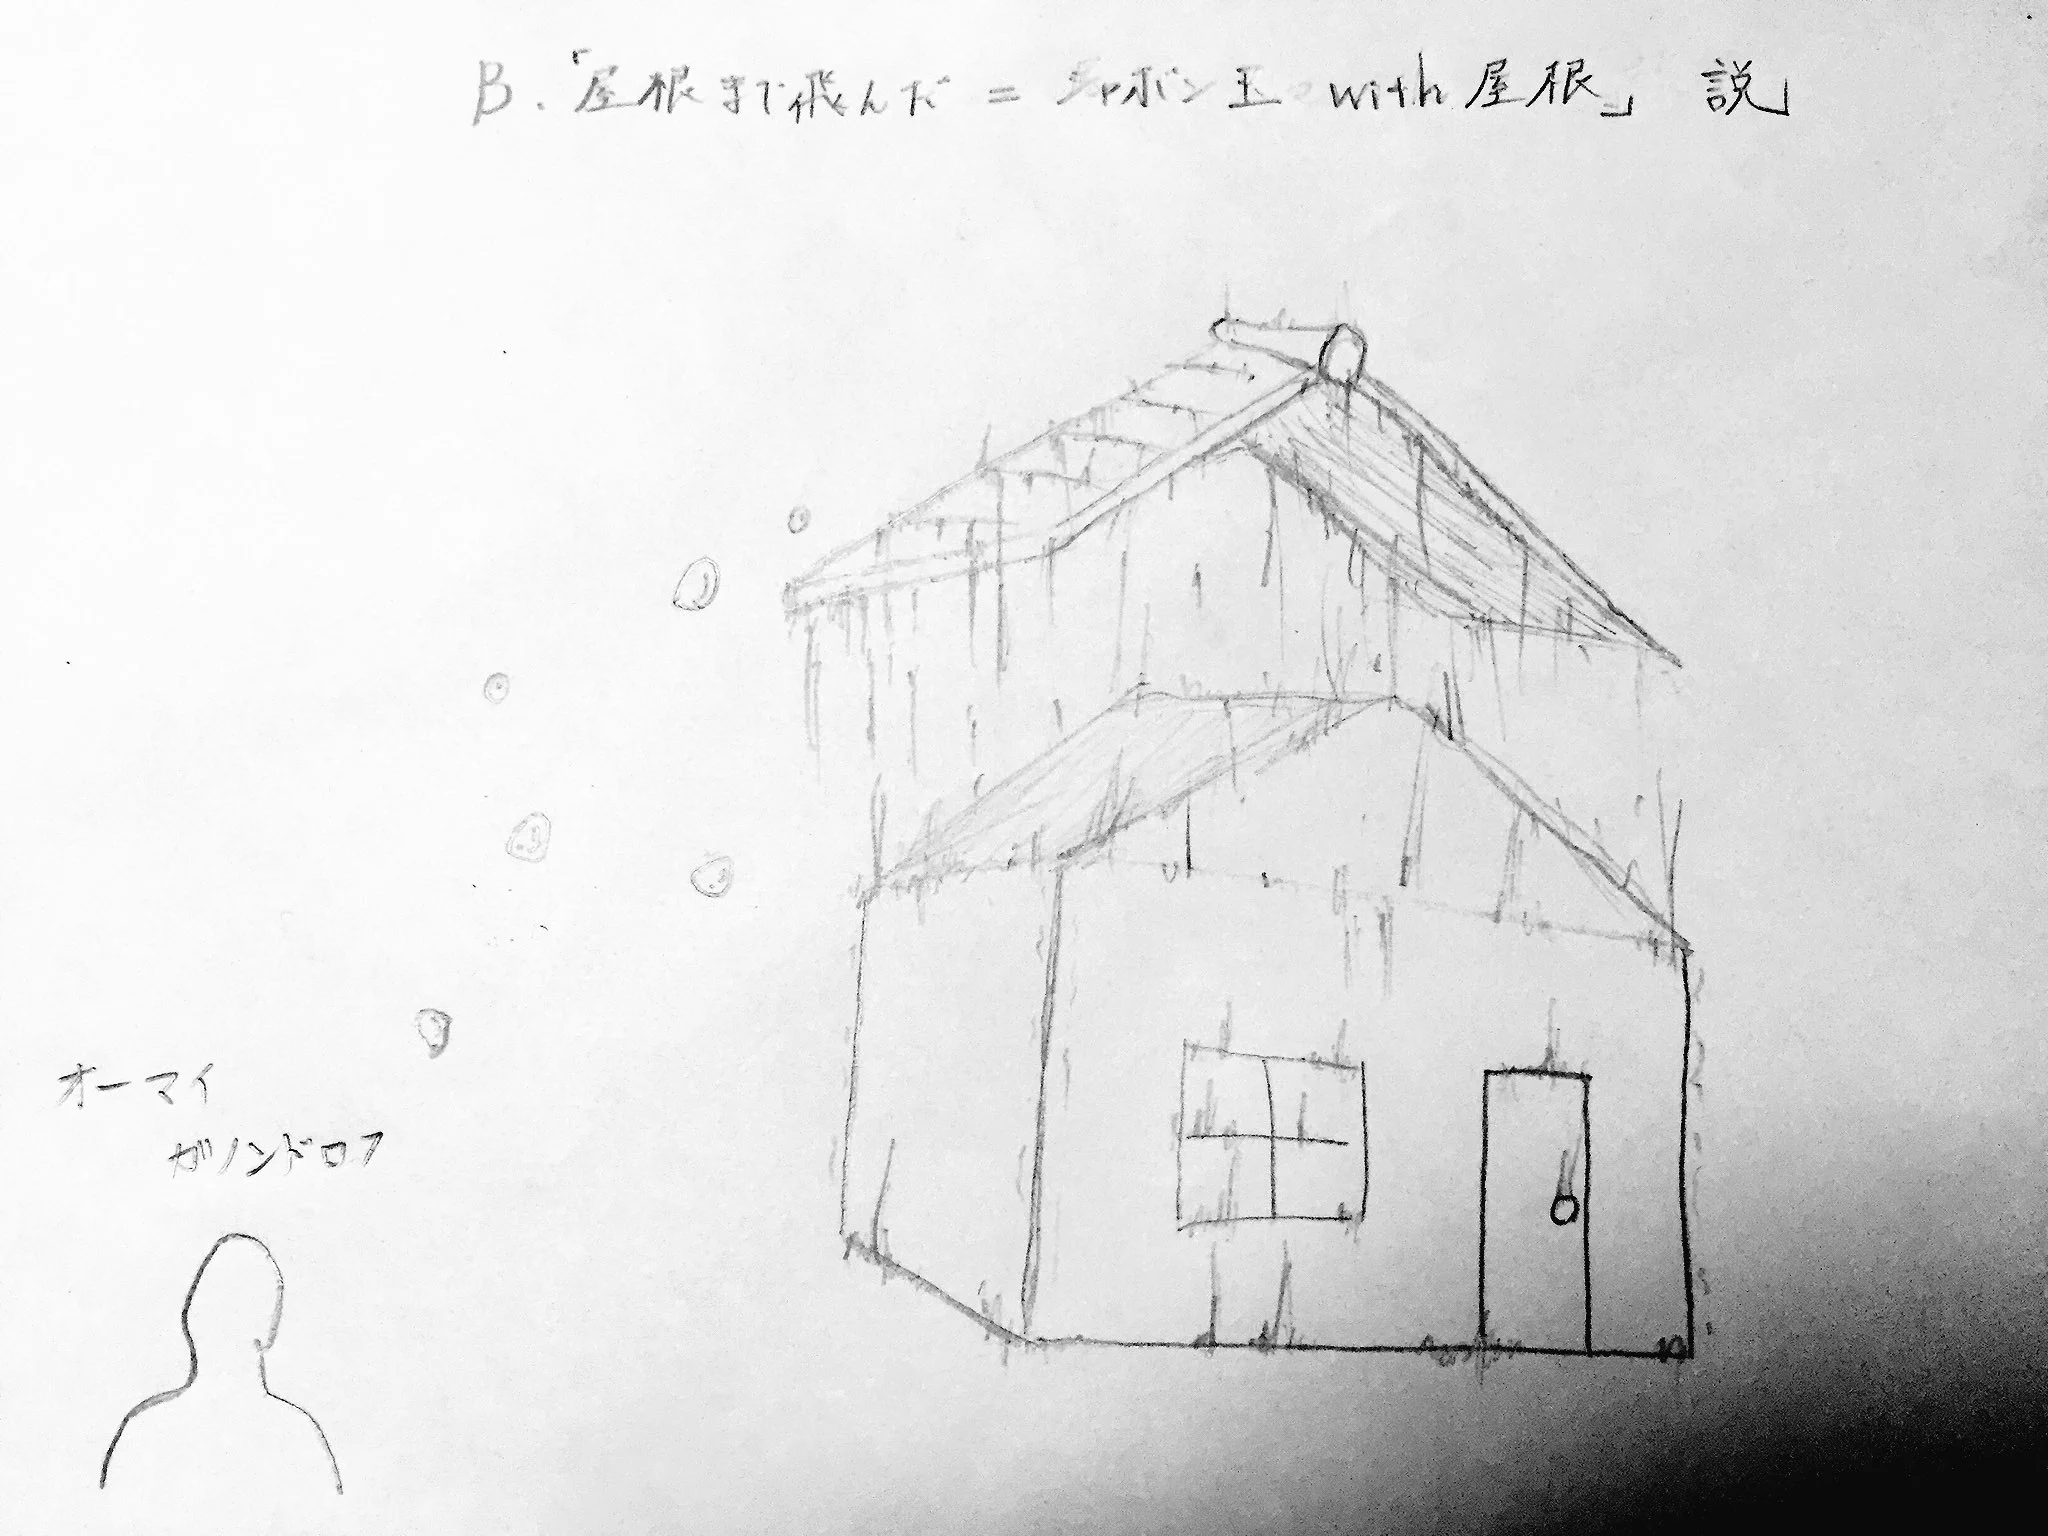 B.「屋根まで飛んだ=シャボン玉 with 屋根」説」
オーマイ
ガノンドロフ